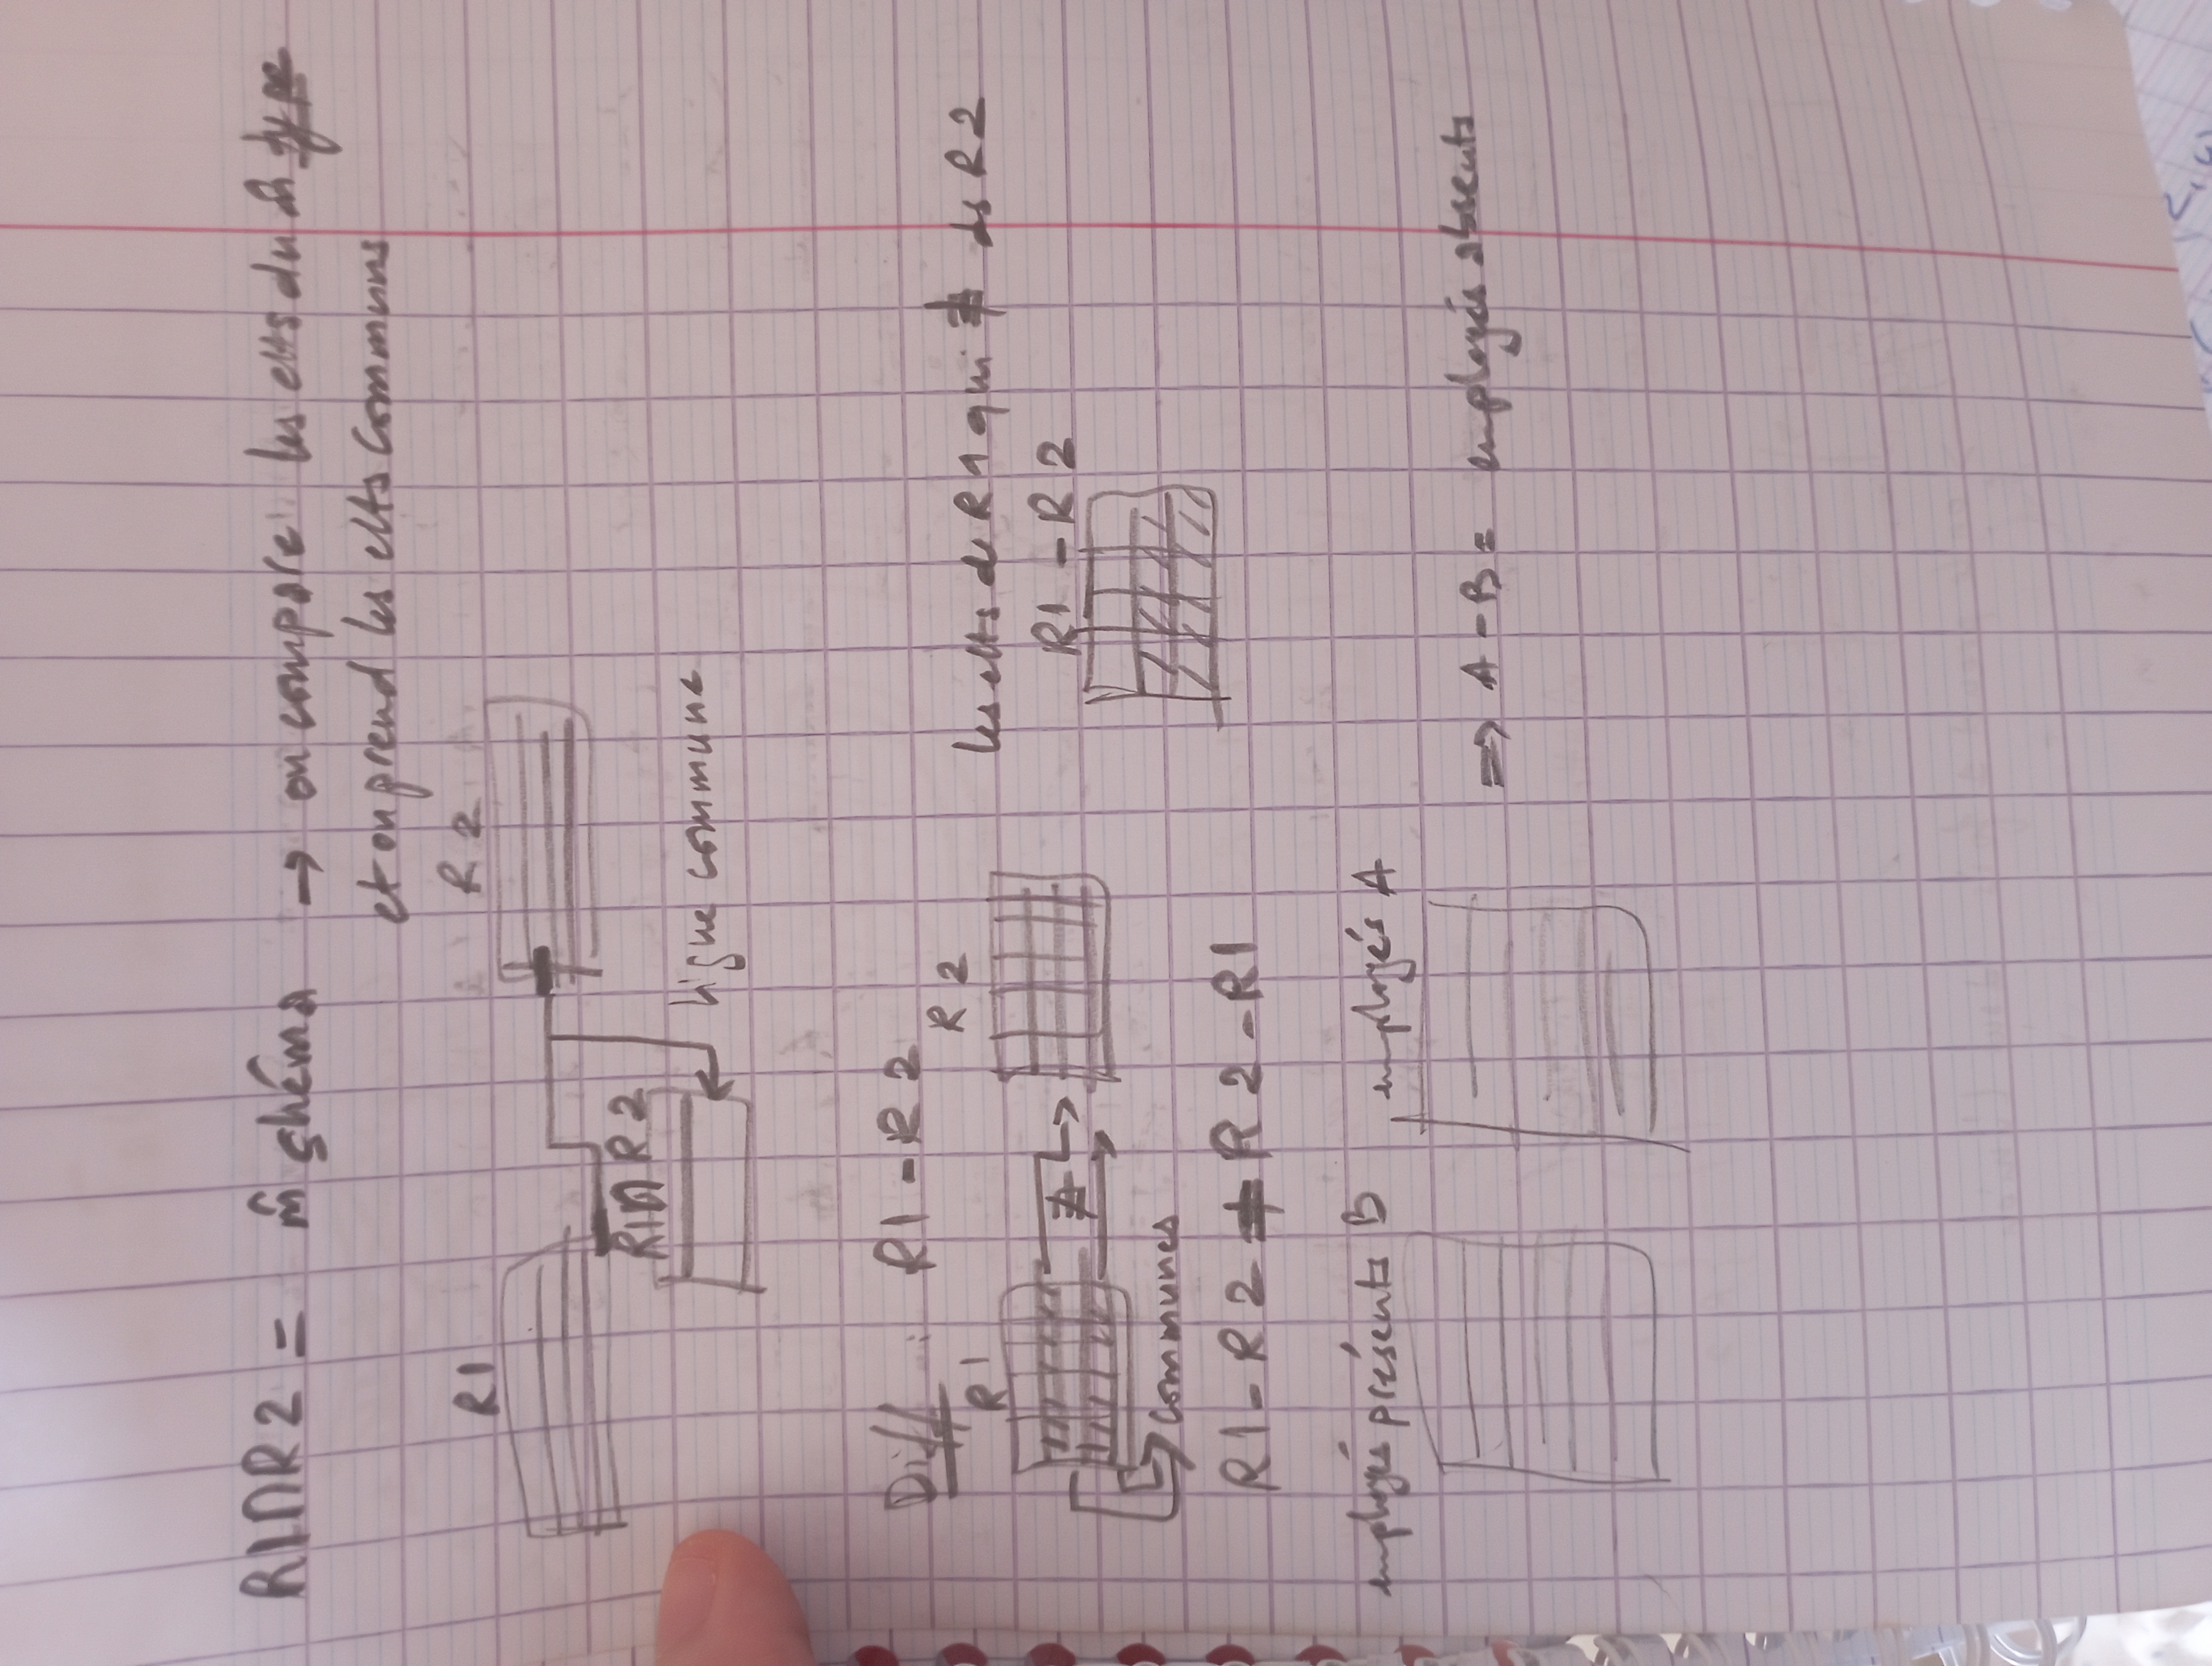 R1∩R2 = m̂ shéma → on compare les elts du m̂ type
et on prend les elts communs
R1 R2
R1∩R2
ligne commune
Diff : R1 - R2
R1 R2
les elts de R1 qui ∄ ds R2
∄
R1 - R2
communes
R1 - R2 ≠ R2 - R1
employés présents B employés A
⇒ A - B = employés absents